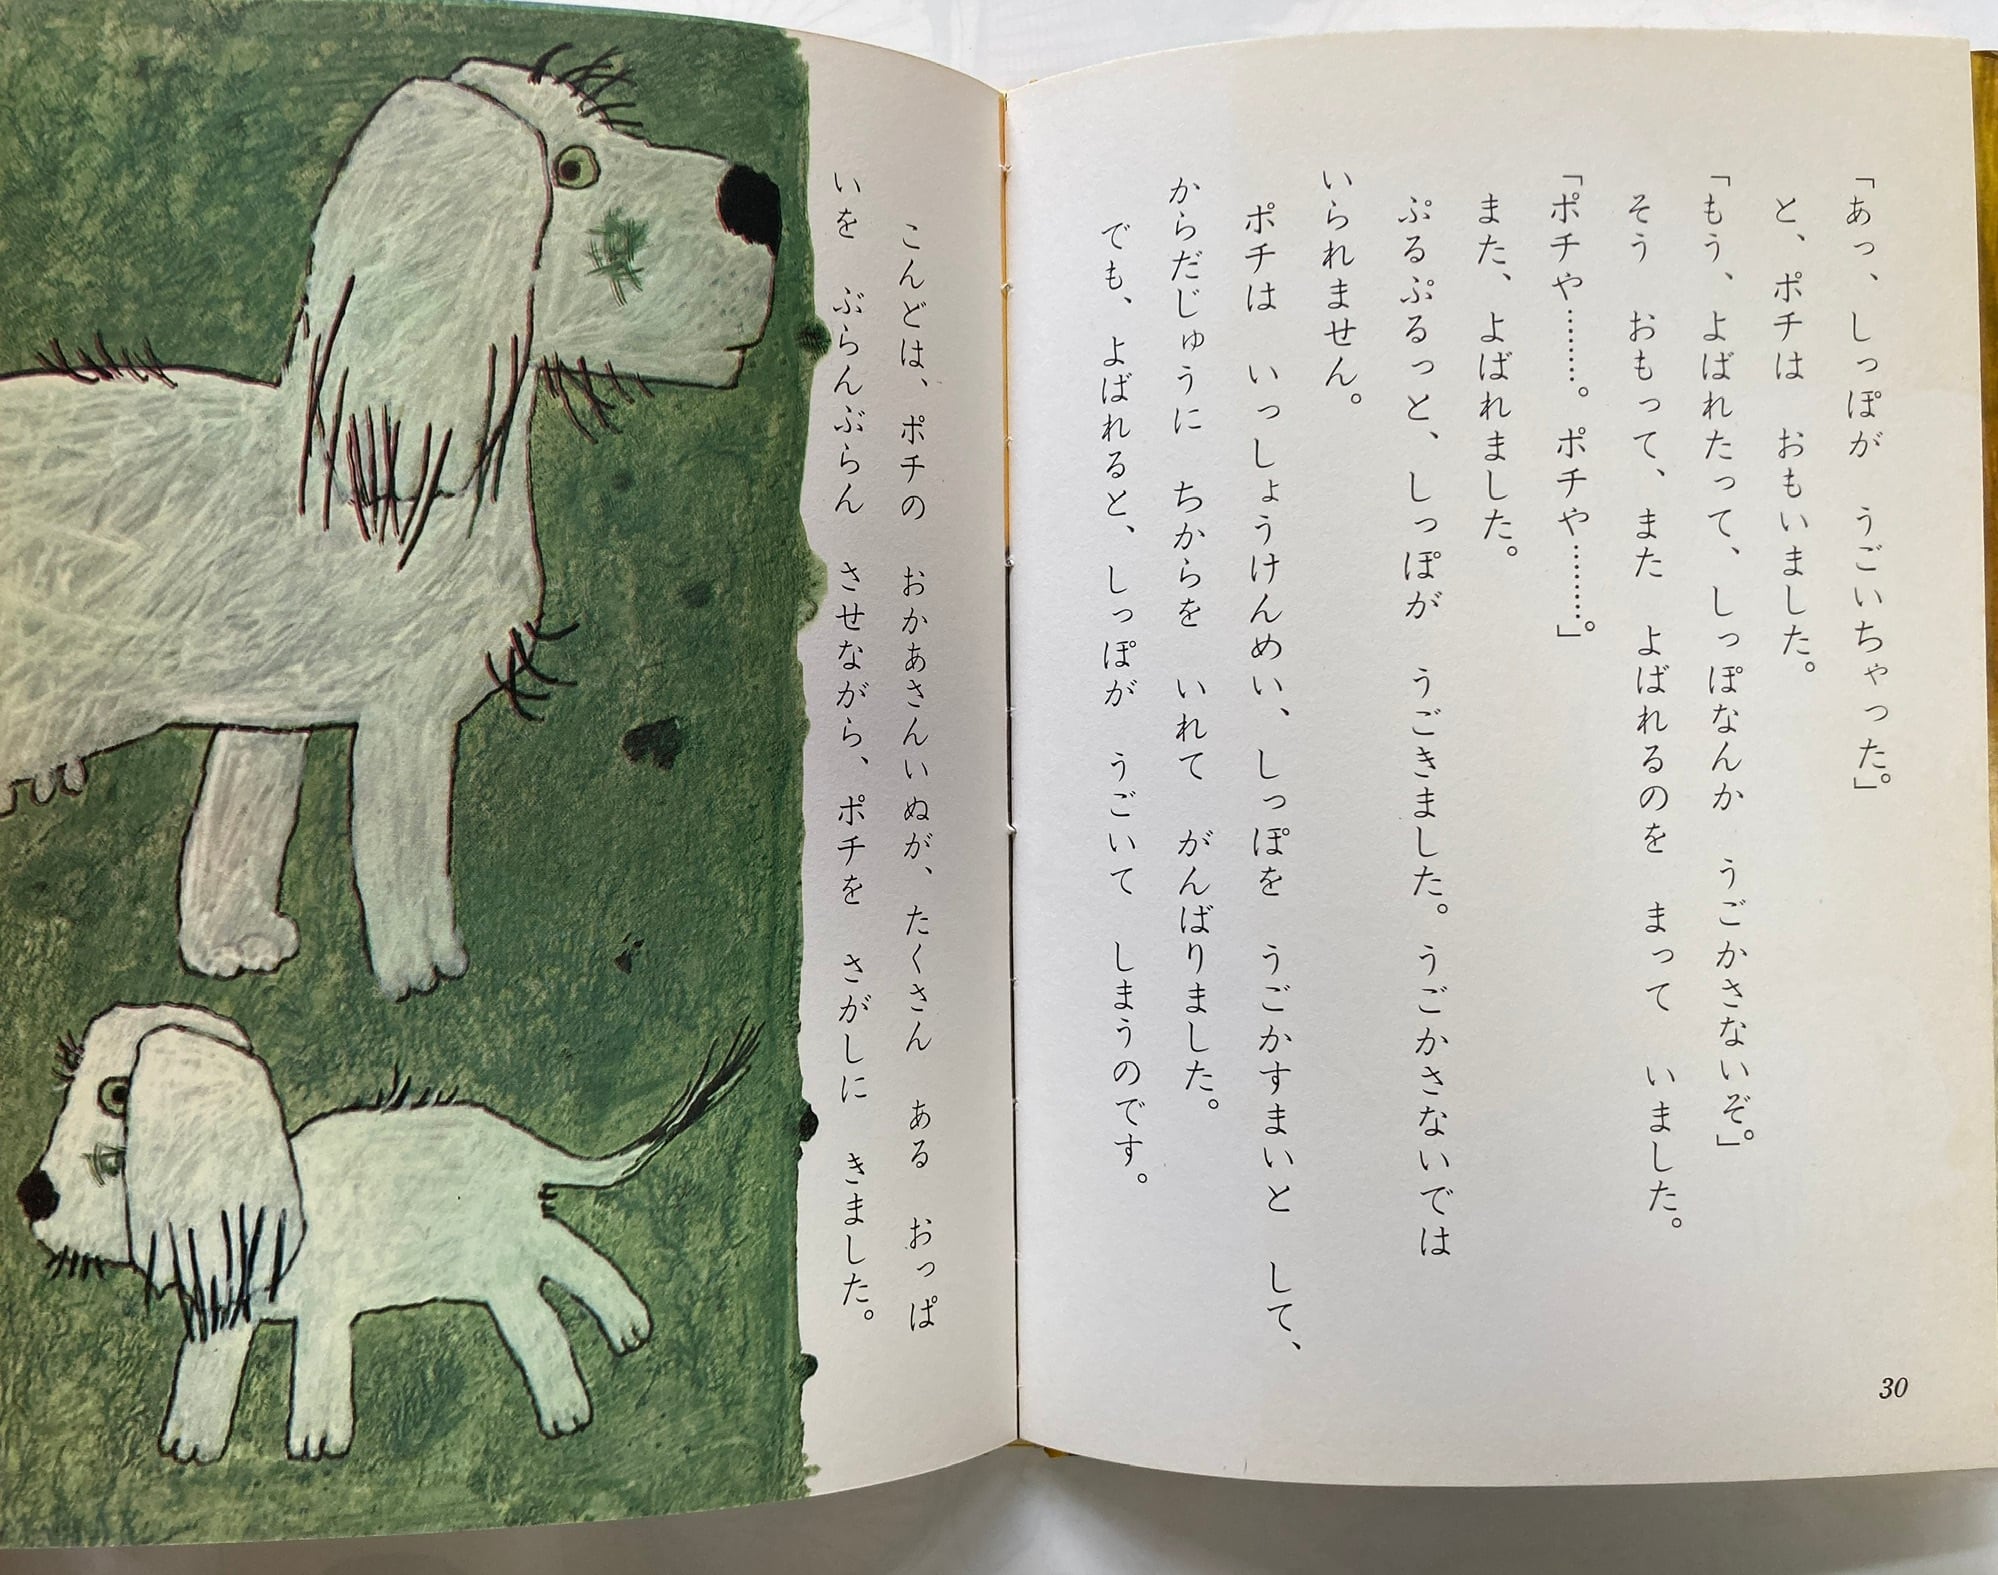 「あっ、しっぽが　うごいちゃった。」
と、ポチは　おもいました。
「もう、よばれたって、しっぽなんか　うごかさないぞ。」
そう　おもって、また　よばれるのを　まって　いました。
「ポチや………。ポチや………。」
また、よばれました。
ぷるぷるっと、しっぽが　うごきました。うごかさないでは
いられません。
ポチは　いっしょうけんめい、しっぽを　うごかすまいと　して、
からだじゅうに　ちからを　いれて　がんばりました。
でも、よばれると、しっぽが　うごいて　しまうのです。
30
こんどは、ポチの　おかあさんいぬが、たくさん　ある　おっぱ
いを　ぶらんぶらん　させながら、ポチを　さがしに　きました。